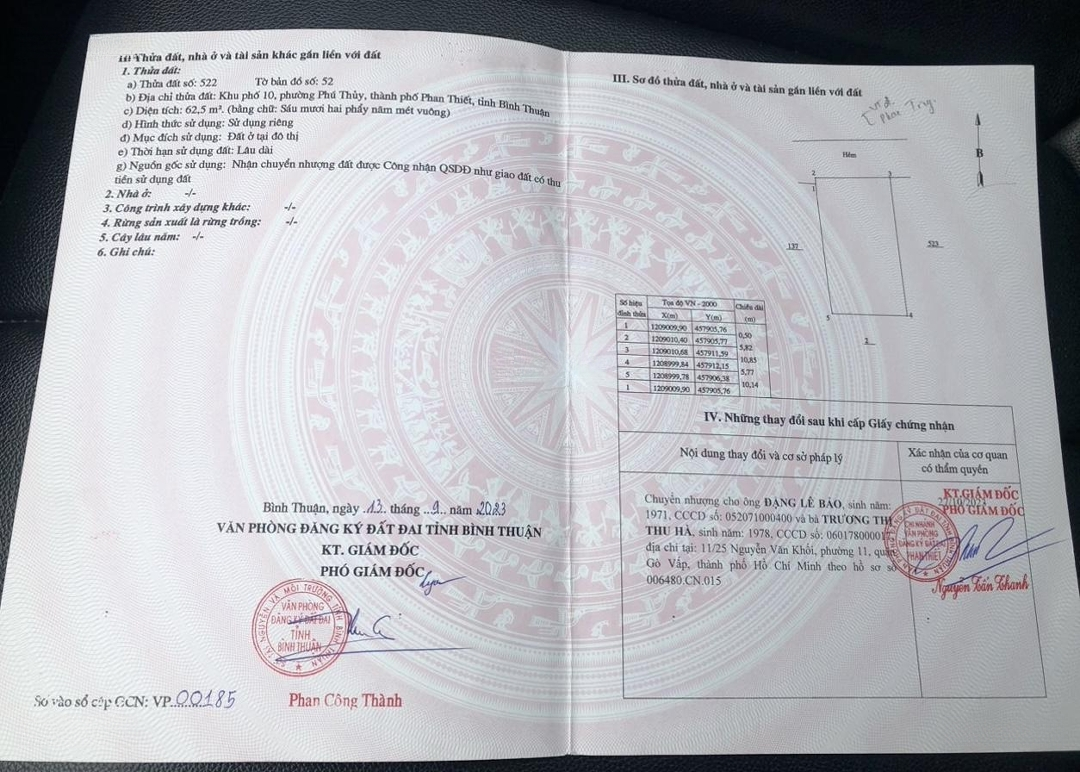 II Thửa đất, nhà ở và tài sản khác gắn liền với đất
1. Thửa đất:
a) Thửa đất số: 522 Tờ bản đồ số: 52
b) Địa chỉ thửa đất: Khu phố 10, phường Phú Thủy, thành phố Phan Thiết, tỉnh Bình Thuận
c) Diện tích: 62,5 m². (bằng chữ: Sáu mươi hai phẩy năm mét vuông)
d) Hình thức sử dụng: Sử dụng riêng
đ) Mục đích sử dụng: Đất ở tại đô thị
e) Thời hạn sử dụng đất: Lâu dài
g) Nguồn gốc sử dụng: Nhận chuyển nhượng đất được Công nhận QSDĐ như giao đất có thu
tiền sử dụng đất
2. Nhà ở: -/-
3. Công trình xây dựng khác: -/-
4. Rừng sản xuất là rừng trồng: -/-
5. Cây lâu năm: -/-
6. Ghi chú:
Bình Thuận, ngày 13 tháng 9 năm 2023
VĂN PHÒNG ĐĂNG KÝ ĐẤT ĐAI TỈNH BÌNH THUẬN
KT. GIÁM ĐỐC
PHÓ GIÁM ĐỐC
VĂN PHÒNG
ĐĂNG KÝ ĐẤT ĐAI
TỈNH
BÌNH THUẬN
Phan Công Thành
Số vào sổ cấp GCN: VP 00185
III. Sơ đồ thửa đất, nhà ở và tài sản gắn liền với đất
Hẻm
B
2 3
1
137 523
5 4
2
Số hiệu đỉnh thửa Tọa độ VN - 2000 Chiều dài (m)
X(m) Y(m)
1 1209009,90 457905,76
0,50
2 1209010,40 457905,77
5,82
3 1209010,68 457911,59
10,85
4 1208999,84 457912,15
5,77
5 1208999,78 457906,38
10,14
1 1209009,90 457905,76
IV. Những thay đổi sau khi cấp Giấy chứng nhận
Nội dung thay đổi và cơ sở pháp lý
Xác nhận của cơ quan
có thẩm quyền
Chuyển nhượng cho ông ĐẶNG LÊ BẢO, sinh năm:
1971, CCCD số: 052071000400 và bà TRƯƠNG THỊ
THU HÀ, sinh năm: 1978, CCCD số:
địa chỉ tại: 11/25 Nguyễn Văn Khối, phường 11, quận
Gò Vấp, thành phố Hồ Chí Minh theo hồ sơ số
006480.CN.015
KT.GIÁM ĐỐC
PHÓ GIÁM ĐỐC
CHI NHÁNH
VĂN PHÒNG
ĐĂNG KÝ ĐẤT ĐAI
PHAN THIẾT
Nguyễn Tấn Thanh